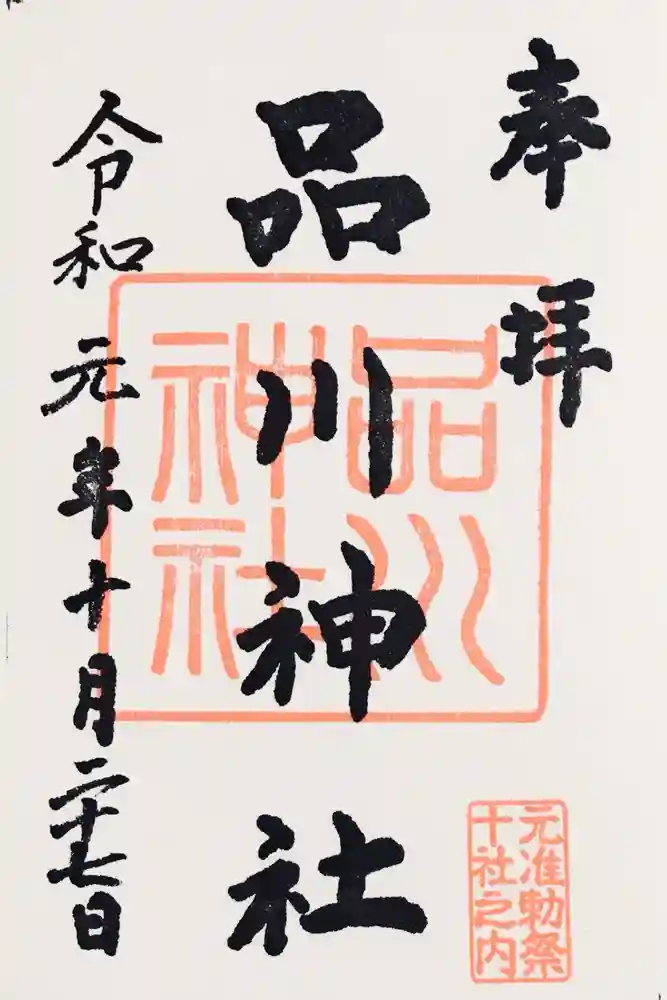 奉拝
品川神社
令和元年十月二十七日
品川
神社
元准勅祭
十社之内